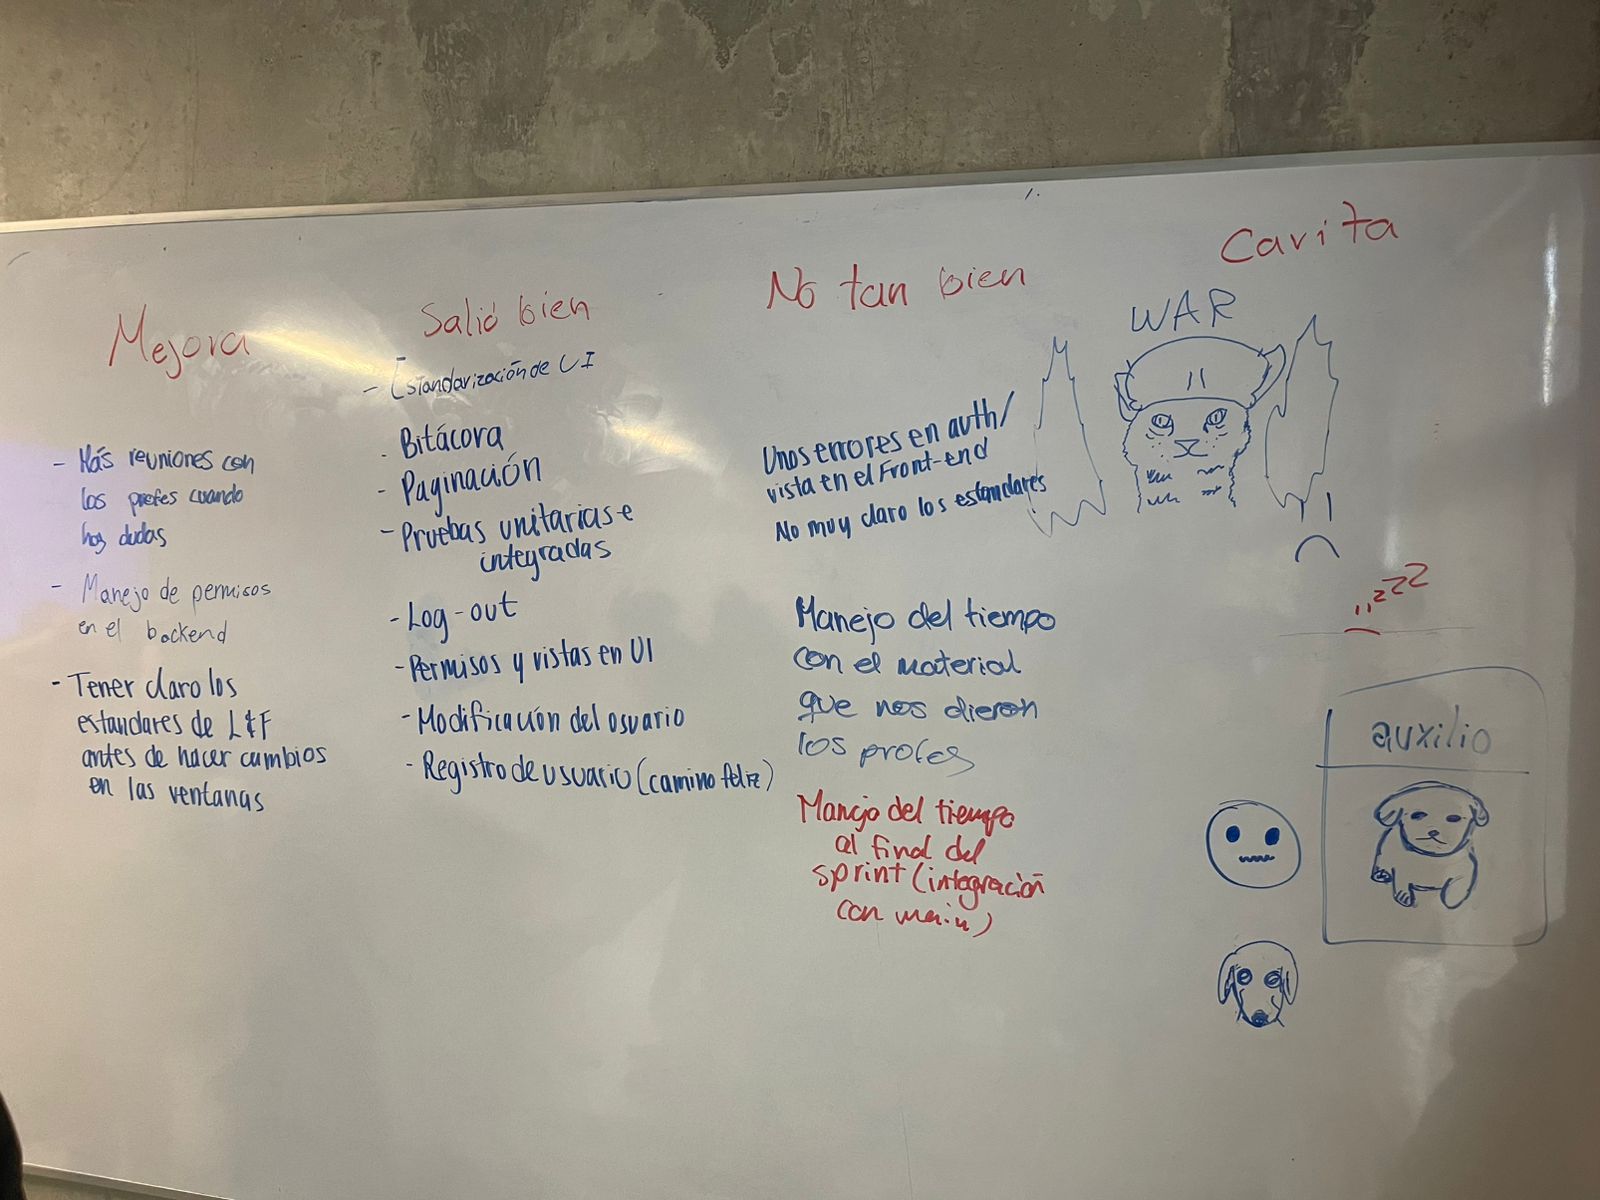 Mejora
- Más reuniones con
los profes cuando
hay dudas
- Manejo de permisos
en el backend
- Tener claro los
estandares de L&F
antes de hacer cambios
en las ventanas
Salió bien
- Estandarización de UI
- Bitácora
- Paginación
- Pruebas unitarias e
integradas
- Log-out
- Permisos y vistas en UI
- Modificación del usuario
- Registro de usuario (camino feliz)
No tan bien
Unos errores en auth/
vista en el Front-end
No muy claro los estandares
Manejo del tiempo
con el material
que nos dieron
los profes
Manejo del tiempo
al final del
sprint (integración
con main)
Carita
WAR
zzzz
auxilio